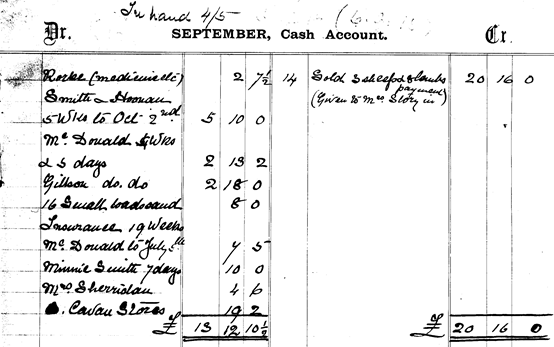 In hand 4/5
Dr. SEPTEMBER, Cash Account. Cr.
Rorke (medicine etc) 2 7½ 14 Sold 3 sheep & 2 lambs 20 16 0
Smith & Noonan payment
5 Wks to Oct 2nd 5 10 0 (Given to Mrs Story in
Mc Donald 5 Wks
& 5 days 2 13 2
Gillson do. do 2 18 0
16 Small loads sand 8 0
Insurance 19 Weeks
Mc Donald to July 7 5
Minnie Smith 7 days 10 0
Mrs Sherridan 4 6
Cavan Stores 19 2
£ 13 12 10½ £ 20 16 0